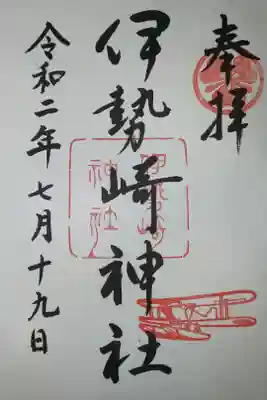 奉拝
伊勢崎神社
令和二年七月十九日
伊勢崎
神社